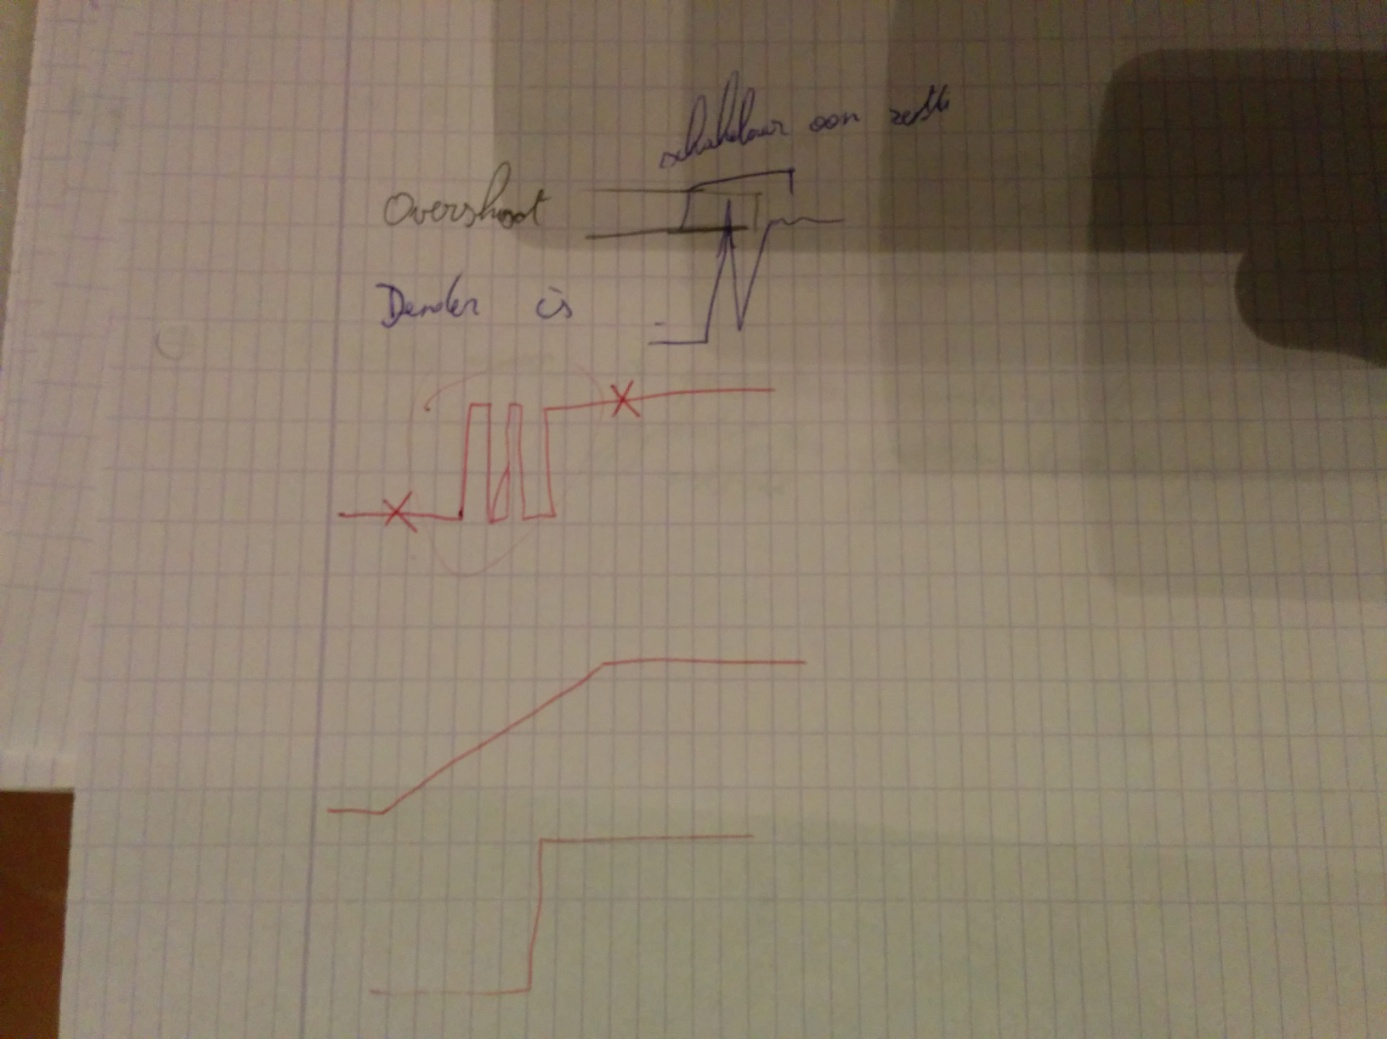 schakelaar aan
Overshoot
Dender is